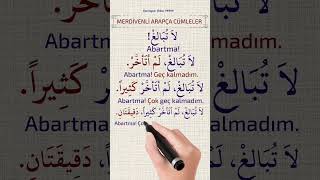 MERDİVENLİ ARAPÇA CÜMLELER
لاَ تُبَالِغْ!
Abartma!
لاَ تُبَالِغْ، لَمْ أَتَأَخَّرْ.
Abartma! Geç kalmadım.
لاَ تُبَالِغْ، لَمْ أَتَأَخَّرْ كَثِيراً.
Abartma! Çok geç kalmadım.
لاَ تُبَالِغْ، لَمْ أَتَأَخَّرْ كَثِيراً، دَقِيقَتَان.
Abartma! Ço